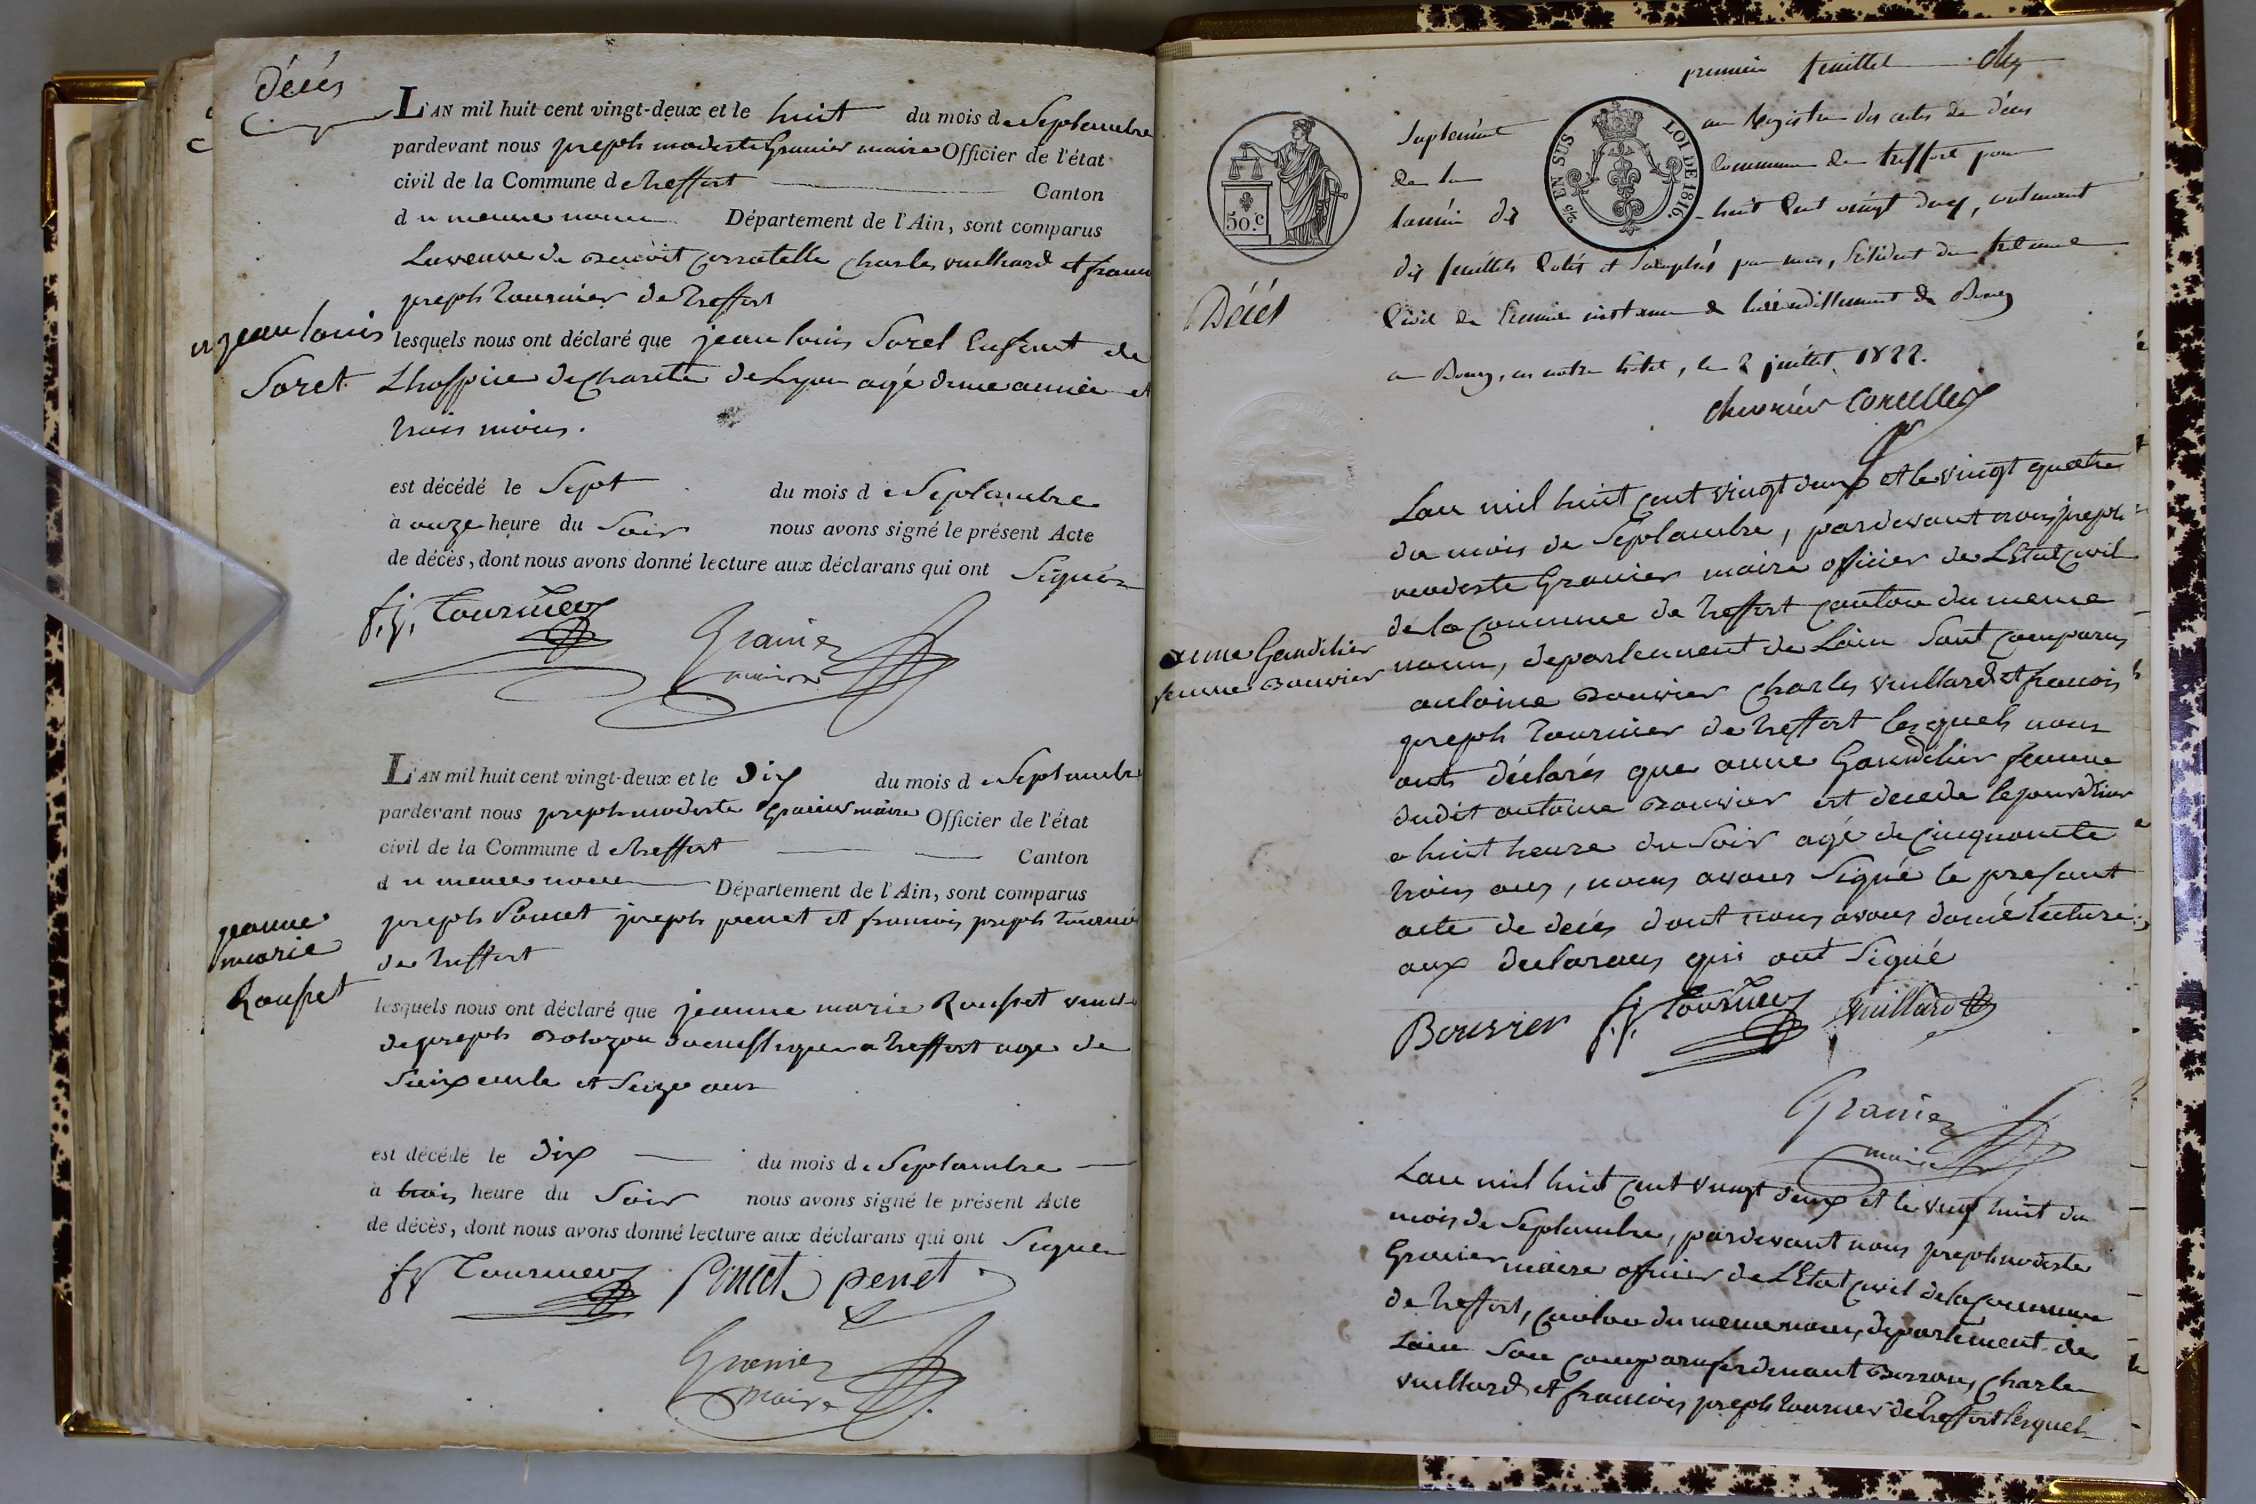 décés
L'AN mil huit cent vingt-deux et le huit du mois de Septembre
pardevant nous joseph modeste Granier maire Officier de l'état
civil de la Commune de treffort Canton
du meme nom Département de l'Ain, sont comparus
La veuve de Benoit Charles Vuilliard et
joseph tournier de treffort
jean louis
Soret
lesquels nous ont déclaré que jean louis Soret Enfant de
Lhospice de Charité de Lyon agé d'une année et
trois mois.
est décédé le Sept du mois de Septembre
à onze heure du Soir nous avons signé le présent Acte
de décès, dont nous avons donné lecture aux déclarans qui ont Signér
f.j. tournier Granier
maire
L'AN mil huit cent vingt-deux et le dix du mois de Septembre
pardevant nous joseph modeste Granier maire Officier de l'état
civil de la Commune de treffort Canton
du meme nom Département de l'Ain, sont comparus
joseph Poncet joseph penet et francois joseph tournier
de treffort
jeanne
marie
Rousset
lesquels nous ont déclaré que jeanne marie Rousset veuve
de joseph Bolozon domestique a treffort age de
Soixante et Seize ans
est décédé le dix du mois de Septembre
à trois heure du Soir nous avons signé le présent Acte
de décès, dont nous avons donné lecture aux déclarans qui ont Signer
fj Tournier Poncet penet
Granier
maire
premier feuillet
Suplément au Registre des actes de décès
de la Commune de treffort pour
lannée dix huit Cent vingt deux, contenant
dix feuillets Cotés et paraphés par nous, Président du tribunal
Civil de Premiere instance de l'arrondissement de Bourg
a Bourg, en notre hotel, le 2 juillet 1822.
50.c
EN SUS
LOI DE 1816.
Chevrier Corcelles
Décés
Lan mil huit cent vingt deux et le vingt quatre
du mois de Septembre, pardevant nous joseph
modeste Granier maire officier de L'Etat Civil
de la Commune de treffort Canton du meme
nom, departement de Lain Sont Comparus
anne Gaudilier
femme Bouvier
antoine Bouvier Charles Vuillard et francois
joseph tournier de treffort lesquels nous
ont déclarés que anne Gaudilier femme
dudit antoine Bouvier est decede le jour d'hier
a huit heure du Soir agé de Cinquante
trois ans, nous avons Signé le presant
acte de décés dont nous avons doné lecture
aux declarans qui ont Signé
Bouvier f.j. Tournier Vuillard
Granier
maire
Lan mil huit Cent vingt deux et le vingt huit du
mois de Septembre, pardevant nous joseph modeste
Granier maire officier de L'Etat Civil de la Commune
de treffort, Canton du meme nom, departement de
Lain Son Comparus ferdinant Charles
Vuillard et francois joseph tournier de treffort lesquels